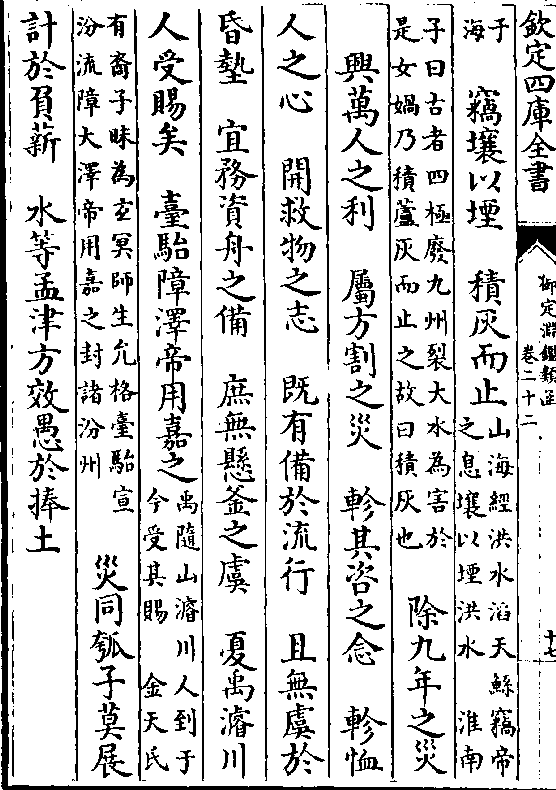 欽定四庫全書
御定淵鑑類函
卷二十二
十七
子
海
竊壤以堙　積灰而止
山海經洪水滔天鯀竊帝
之息壤以堙洪水　淮南
子曰古者四極廢九州裂大水為害於
是女媧乃積蘆灰而止之故曰積灰也
除九年之災
興萬人之利　屬方割之災　軫其咨之念　軫恤
人之心　開救物之志　既有備於流行　且無虞於
昏墊　宜務資舟之備　庶無懸釜之虞　夏禹濬川
人受賜矣　臺駘障澤帝用嘉之
禹隨山濬川人到于
今受其賜　金天氏
有裔子昧為玄冥師生允格臺駘宣
汾流障大澤帝用嘉之封諸汾州
災同瓠子莫展
計於負薪　水等孟津方效愚於捧土